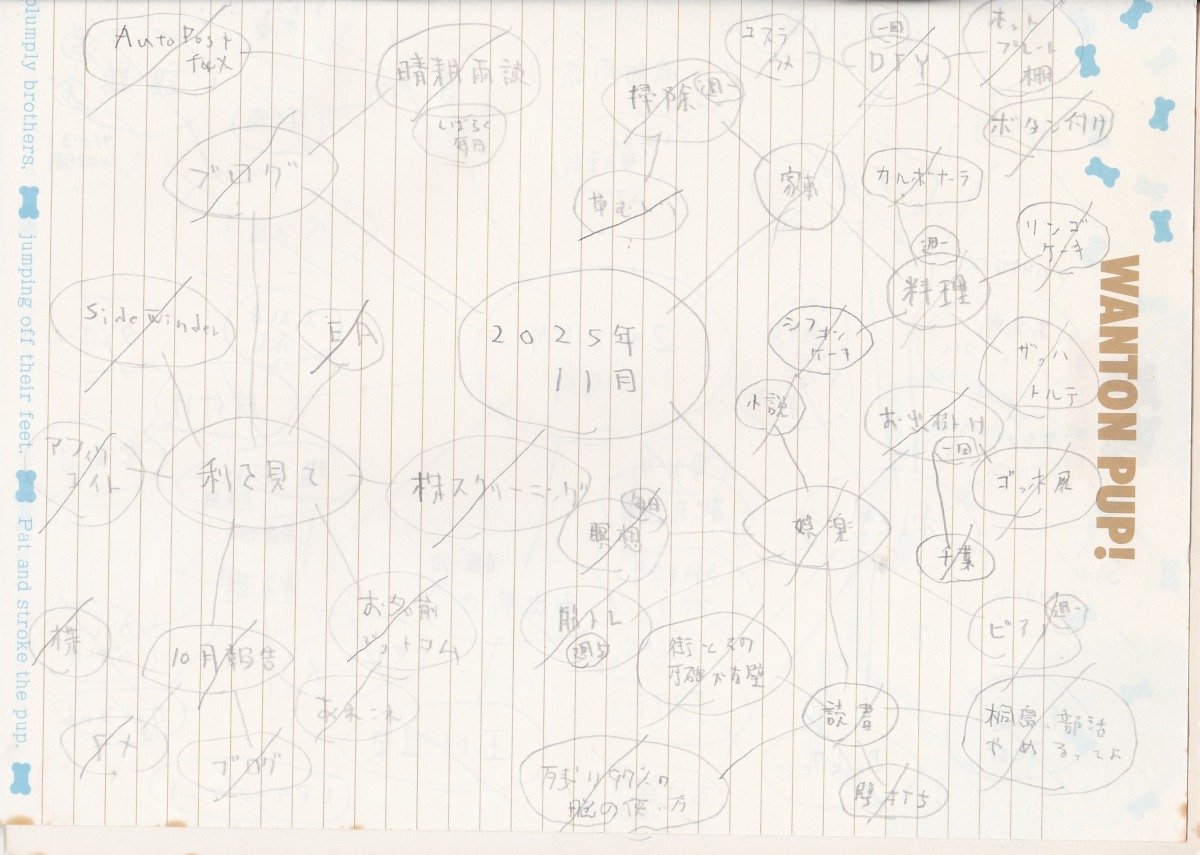 plumply brothers, jumping off their feet. Pat and stroke the pup.
WANTON PUP!
2025年
11月
ブログ
AutoPost
for X
晴耕雨談
しばらく
毎日
掃除
週一
草むしり
家事
ユスラ
ウメ
一回
DIY
ホット
プレート
棚
ボタン付け
カルボナーラ
週一
料理
リンゴ
ケーキ
シフォン
ケーキ
ザッハ
トルテ
小説
お出掛け
一回
ゴッホ展
千葉
娯楽
瞑想
毎日
筋トレ
街とその
不確かな壁
読書
残り97%の
脳の使い方
壁打ち
桐島、部活
やめるってよ
ピアノ
週一
SideWinder
EA
利を見て
アフィリ
エイト
株スクリーニング
株
10月報告
ブログ
お名前
ドットコム
あれこれ